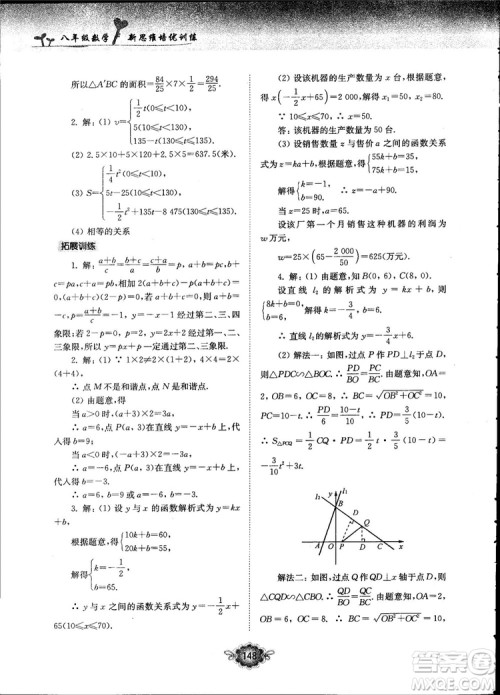 八年级数学 新思维培优训练
所以△A′BC 的面积=84/25×7×1/2=294/25.
2. 解：(1) v={1/2 t(0≤t<10) 5(10≤t<130) 135-t(130≤t≤135)
(2) 2.5×10+5×120+5×2.5=637.5(米).
(3) S={1/4 t²(0≤t<10) 5t-25(10≤t<130) -1/2 t²+135t-8 475(130≤t≤135)
(4) 相等的关系
拓展训练
1. 解：a+b/c=b+c/a=c+a/b=p, ∴ a+b=pc, b+c=pa, c+a=pb, ∴
p=2, y=2x+2 经过第一、二、三
象限；当 a+b/c=-1 时, y=-x-1 经过第二、三、四
象限；而 y=px+p 一定经过第二、
三象限.
2. 解：(1) ∵ 1×2≠2×(1+2), 4×4=2×
(4+4),
∴ 点 M 不是和谐点, 点 N 是和谐点.
(2) 由题意得
当 a>0 时, (a+3)×2=3a,
∴ a=6, ∴ 点 P(a, 3)在直线 y=-x+b 上,
代入得 b=9
当 a<0 时, (-a+3)×2=-3a,
∴ a=-6, ∴ 点 P(-6, 3)在直线 y=-x+b 上,
代入得 b=-3, ∴ a=6, b=9 或 a=-6, b=-3.
3. 解：(1) 设 y 与 x 的函数解析式为 y=kx+b
根据题意, 得{10k+b=60 20k+b=55
解得{k=-1/2 b=65
∴ y 与 x 之间的函数关系式为 y=-1/2 x+
65(10≤x≤70).
(2) 设该机器的生产数量为 x 台, 根据题意,
得 x(-1/2 x+65)=2 000, 解得 x₁=50, x₂=80.
∵ 10≤x≤70, ∴ x=50.
答：该机器的生产数量为 50 台.
(3) 设销售数量 z 与售价 a 之间的函数关系式
为 z=ka+b 根据题意, 得{55k+b=35 75k+b=15
解得{k=-1 b=90 ∴ z=-a+90
当 z=25 时, a=65.
设该厂第一个月销售这种机器的利润为
w 万元,
w=25×(65-2 000/50)=625(万元).
4. 解：(1) 由题意, 知 B(0, 6), C(8, 0).
设直线 l₂ 的解析式为 y=kx+b, 则
{8k+b=0 b=6 解得{k=-3/4 b=6
∴ 直线 l₂ 的解析式为 y=-3/4 x+6.
(2) 解法一：如图, 过点 P 作 PD⊥l₂ 于点 D,
则△PDC∽△BOC. ∴ PD/BO=PC/BC. 由题意, 知 OA=
2, OB=6, OC=8. ∴ BC=√OB²+OC²=10, PC=
10-t, ∴ PD/6=10-t/10, ∴ PD=3/5(10-t).
∴ S△PCQ=1/2 CQ·PD=1/2 t·3/5(10-t)=
-3/10 t²+3t.
l₁ y l₁ B D Q A O P D C x
解法二：如图, 过点 Q 作 QD⊥x 轴于点 D,
则△CQD∽△CBO. ∴ QD/BO=QC/BC. 由题意, 知 OA=
2, OB=6, OC=8. ∴ BC=√OB²+OC²=10.
148